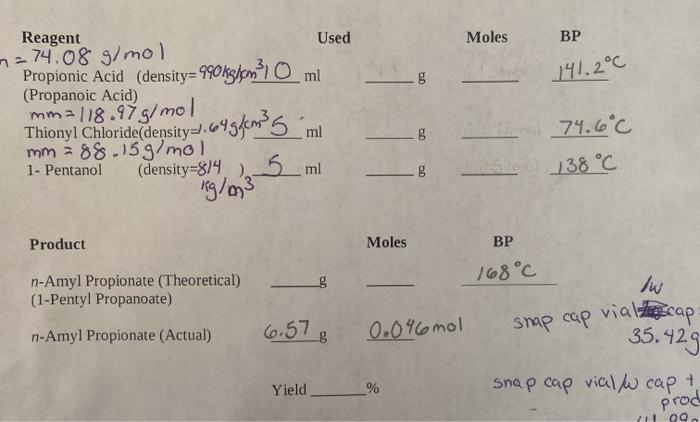 Reagent Used Moles BP
= 74.08 g/mol
Propionic Acid (density= 990kg/cm³ 10 ml ____ g ____ 141.2°C
(Propanoic Acid)
mm = 118.97 g/mol
Thionyl Chloride(density=1.64g/cm³ 5 ml ____ g ____ 74.6°C
mm = 88.15 g/mol
1- Pentanol (density=814 ) 5 ml ____ g ____ 138°C
kg/m³
Product Moles BP
n-Amyl Propionate (Theoretical) ____ g ____ 168°C
(1-Pentyl Propanoate)
/w
snap cap vial cap
n-Amyl Propionate (Actual) 6.57 g 0.046mol
35.42g
Yield ____ % snap cap vial /w cap +
prod